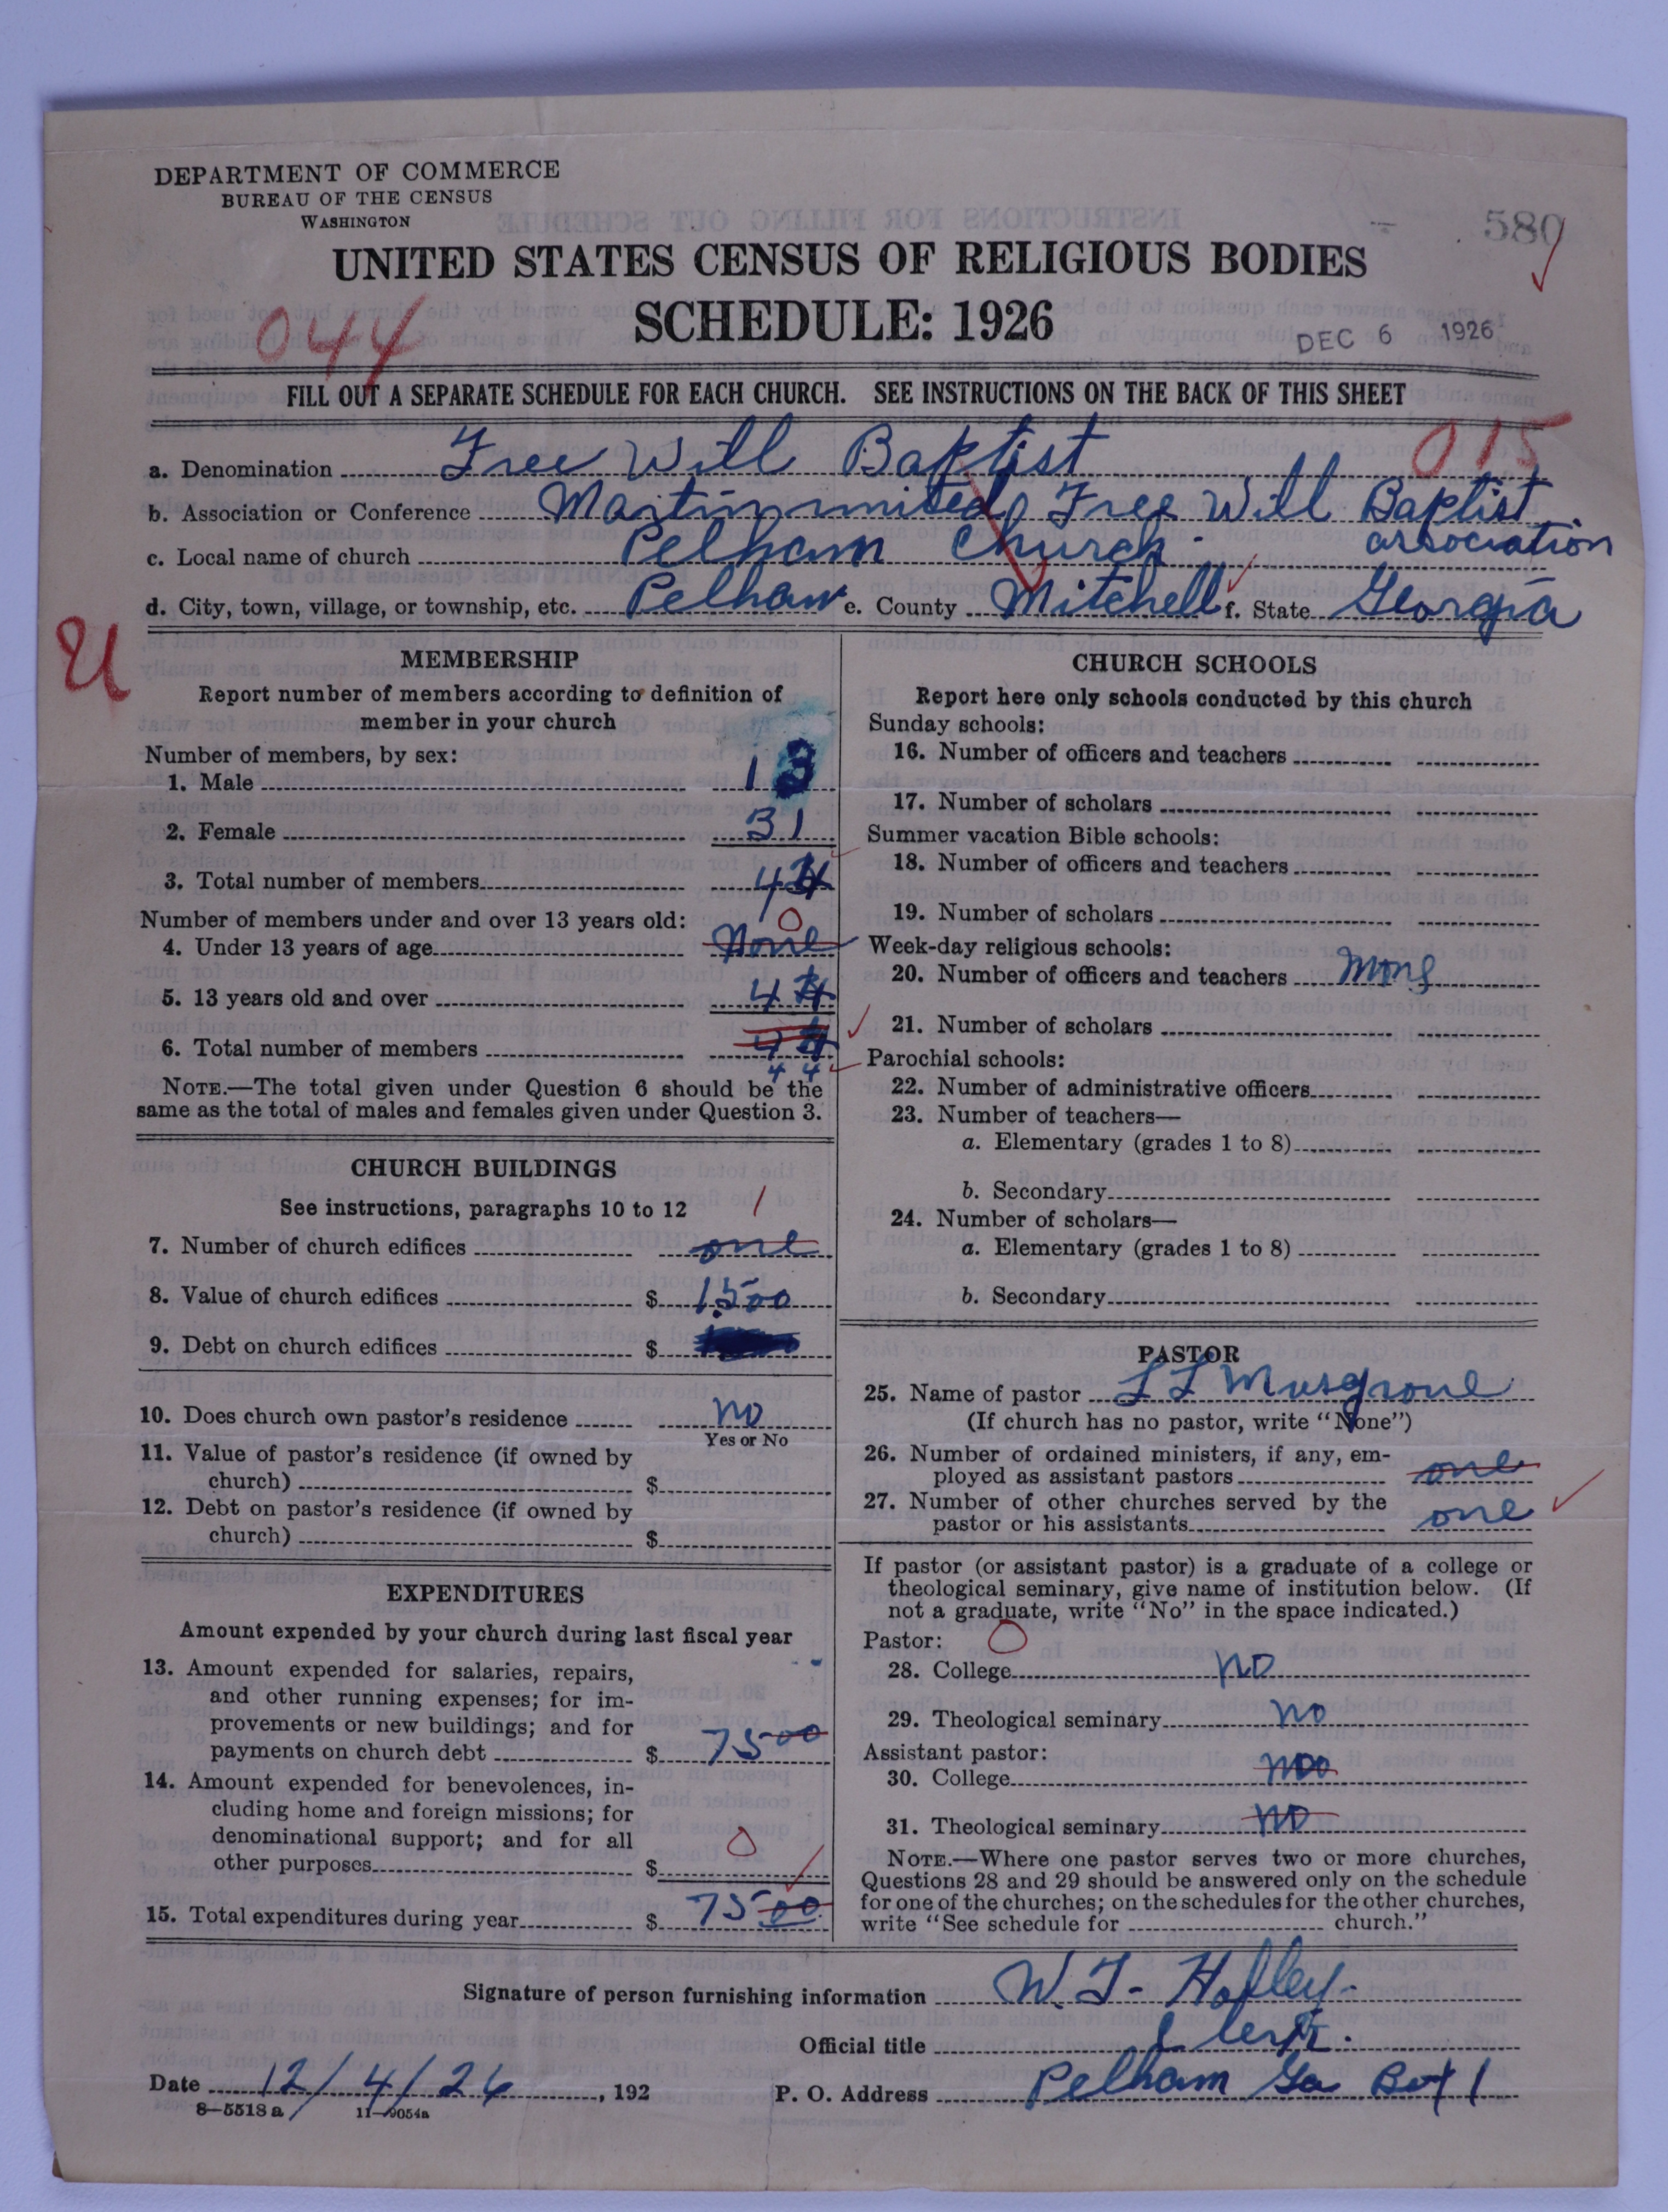 DEPARTMENT OF COMMERCE
BUREAU OF THE CENSUS
WASHINGTON
580
UNITED STATES CENSUS OF RELIGIOUS BODIES
SCHEDULE: 1926
044
DEC 6 1926
FILL OUT A SEPARATE SCHEDULE FOR EACH CHURCH. SEE INSTRUCTIONS ON THE BACK OF THIS SHEET
015
a. Denomination Free Will Baptist
b. Association or Conference Martin united Free Will Baptist association
c. Local name of church Pelham Church
d. City, town, village, or township, etc. Pelham e. County Mitchell f. State Georgia
U
MEMBERSHIP
Report number of members according to definition of
member in your church
Number of members, by sex:
1. Male 13
2. Female 31
3. Total number of members 44
Number of members under and over 13 years old:
0
4. Under 13 years of age None
5. 13 years old and over 44
6. Total number of members 44
4 4
NOTE.—The total given under Question 6 should be the
same as the total of males and females given under Question 3.
CHURCH BUILDINGS
See instructions, paragraphs 10 to 12
1
7. Number of church edifices one
8. Value of church edifices $ 1500
9. Debt on church edifices $
10. Does church own pastor's residence no
Yes or No
11. Value of pastor's residence (if owned by
church) $
12. Debt on pastor's residence (if owned by
church) $
EXPENDITURES
Amount expended by your church during last fiscal year
13. Amount expended for salaries, repairs,
and other running expenses; for im-
provements or new buildings; and for
payments on church debt $ 75 00
14. Amount expended for benevolences, in-
cluding home and foreign missions; for
denominational support; and for all
other purposes $ 0
15. Total expenditures during year $ 75 00
CHURCH SCHOOLS
Report here only schools conducted by this church
Sunday schools:
16. Number of officers and teachers
17. Number of scholars
Summer vacation Bible schools:
18. Number of officers and teachers
19. Number of scholars
Week-day religious schools:
20. Number of officers and teachers
21. Number of scholars
Parochial schools:
22. Number of administrative officers
23. Number of teachers—
a. Elementary (grades 1 to 8)
b. Secondary
24. Number of scholars—
a. Elementary (grades 1 to 8)
b. Secondary
PASTOR
25. Name of pastor L L Musgrove
(If church has no pastor, write "None")
26. Number of ordained ministers, if any, em-
ployed as assistant pastors one
27. Number of other churches served by the
pastor or his assistants one
If pastor (or assistant pastor) is a graduate of a college or
theological seminary, give name of institution below. (If
not a graduate, write "No" in the space indicated.)
Pastor: 0
28. College no
29. Theological seminary no
Assistant pastor:
30. College no
31. Theological seminary no
NOTE.—Where one pastor serves two or more churches,
Questions 28 and 29 should be answered only on the schedule
for one of the churches; on the schedules for the other churches,
write "See schedule for church."
Signature of person furnishing information W. T. Hofley
Official title Clerk.
Date 12/4/26, 192 P. O. Address Pelham Ga Box 1
8—5518 a 11—9054a